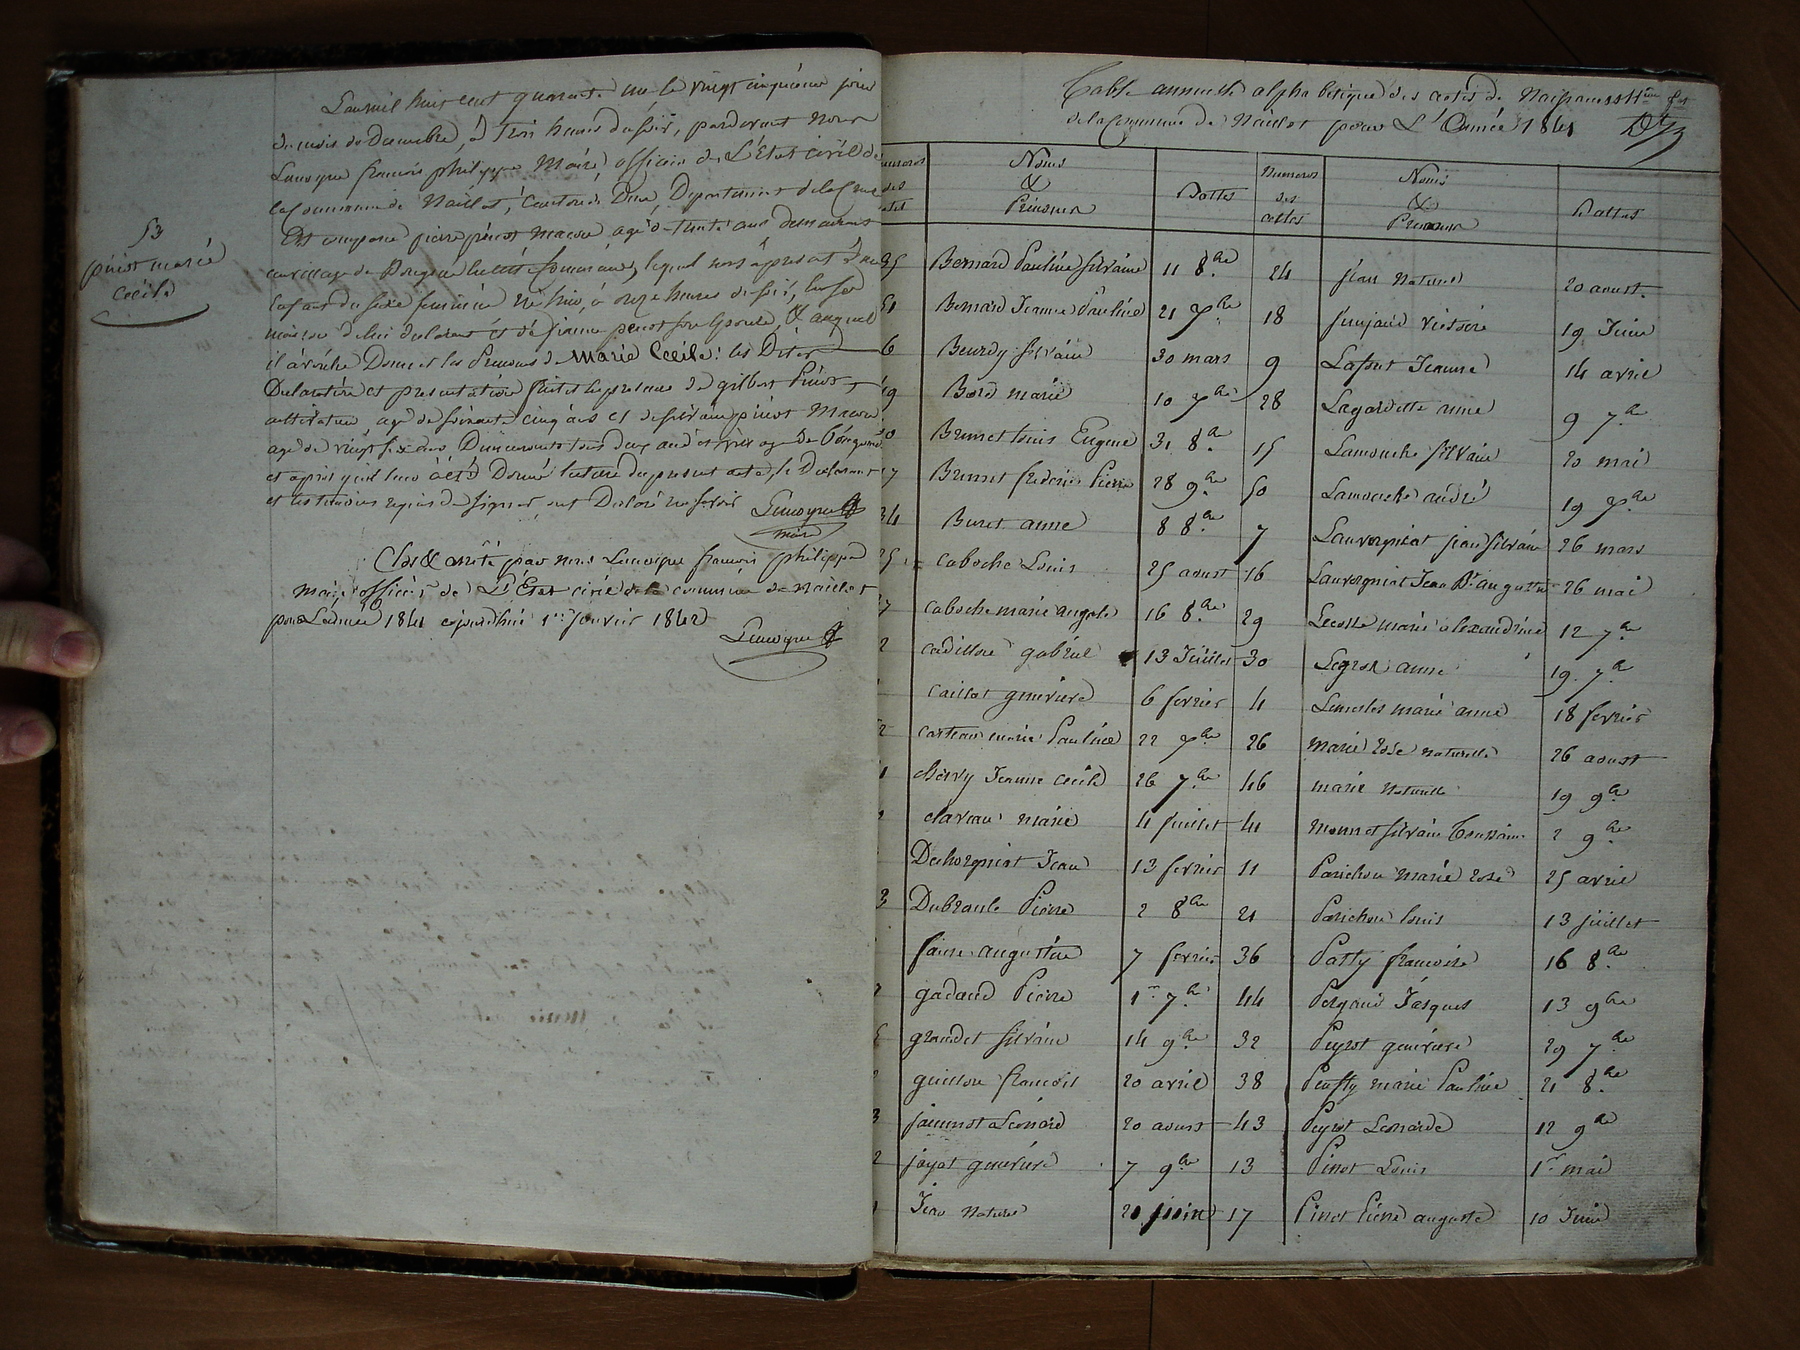 53
pinot marie
Cecile
L'an mil huit cent quarante un le vingt cinquieme jour
du mois de Decembre, à trois heures du soir, pardevant nous
Lamoyne françois philippe Maire, officier de L'Etat civil de
la Commune de Naillat, Canton de Dun, Departement de la Creuse
Est comparu pierre pinot macon agé de trente ans demeurant
au village de
enfant du sexe feminin né hier, à onze heures du soir,
maison de lui declarant et de pinot son Epouse, & auquel
il a declaré Donner les Prenoms de Marie Cecile: les Dites
Declaration et presentation faites en presence de gilbert Pinot
cultivateur agé de soixante cinq ans et de silvain pinot Macon
agé de vingt six ans Demeurants tous deux au dit village de
et après qu'il leur à été Donné lecture du present acte, le Declarant
et les temoins requis de signer, ont Declaré ne savoir
Lamoyne
maire
Clos & arrêté par nous Lamoyne françois philippe
maire officier de L'Etat civil de la commune de Naillat
pour L'année 1841 cejourd'hui 1er janvier 1842
Lamoyne
Table annuelle alphabetique des actes de Naissances
de la Commune de Naillat pour L'Année 1841
Noms & Prenoms Dattes Numeros des acttes Noms & Prenoms Dattes
35 Bernard Pauline silvaine 11 8bre 24 jean Naturel 20 aoust
31 Bernard Jeanne Pauline 21 7bre 18 victoire 19 Juin
6 Beurdy silvain 30 mars 9 Lafont Jeanne 14 avril
Bord marie 10 7bre 28 Lagardette anne 9 7bre
Brunet louis Eugene 31 8bre 15 Lamouche silvain 20 mai
Brunet frederic Pierre 28 9bre 50 Lamouche andré 19 Xbre
34 Buret anne 8 8bre 7 Lavergniat jean silvain 26 mars
25 caboche Louis 25 aoust 16 Lavergniat Jean Bte auguste 26 mai
caboche marie angele 16 8bre 29 Lecolle marie alexandrine 12 7bre
cadillon gabriel 13 Juillet 30 Legros anne 19 7bre
caillat genevieve 6 fevrier 4 Lemesles marie anne 18 fevrier
carteau marie Pauline 22 Xbre 26 marie rose naturelle 26 aoust
chervy Jeanne cecile 26 7bre 46 marie Naturelle 19 9bre
claveau marie 4 juillet 41 monnet silvain Toussaint 2 9bre
Duhorgniat Jean 13 fevrier 11 Parichon marie rose 25 avril
3 Dubranle Pierre 2 8bre 21 Parichon louis 13 juillet
faure augustine 7 fevrier 36 Patty francoise 16 8bre
gadaud Pierre 1er 7bre 44 Jacques 13 9bre
grandet silvain 14 9bre 32 Peyrot genevieve 29 7bre
guillon francois 20 avril 38 marie Pauline 21 8bre
jaunnot Léonard 20 aoust 43 Peyrot Leonarde 12 9bre
jayat genevieve 7 9bre 13 Pinot Louis 1er mai
Jean Naturel 20 juin 17 Pinot Pierre auguste 10 Juin